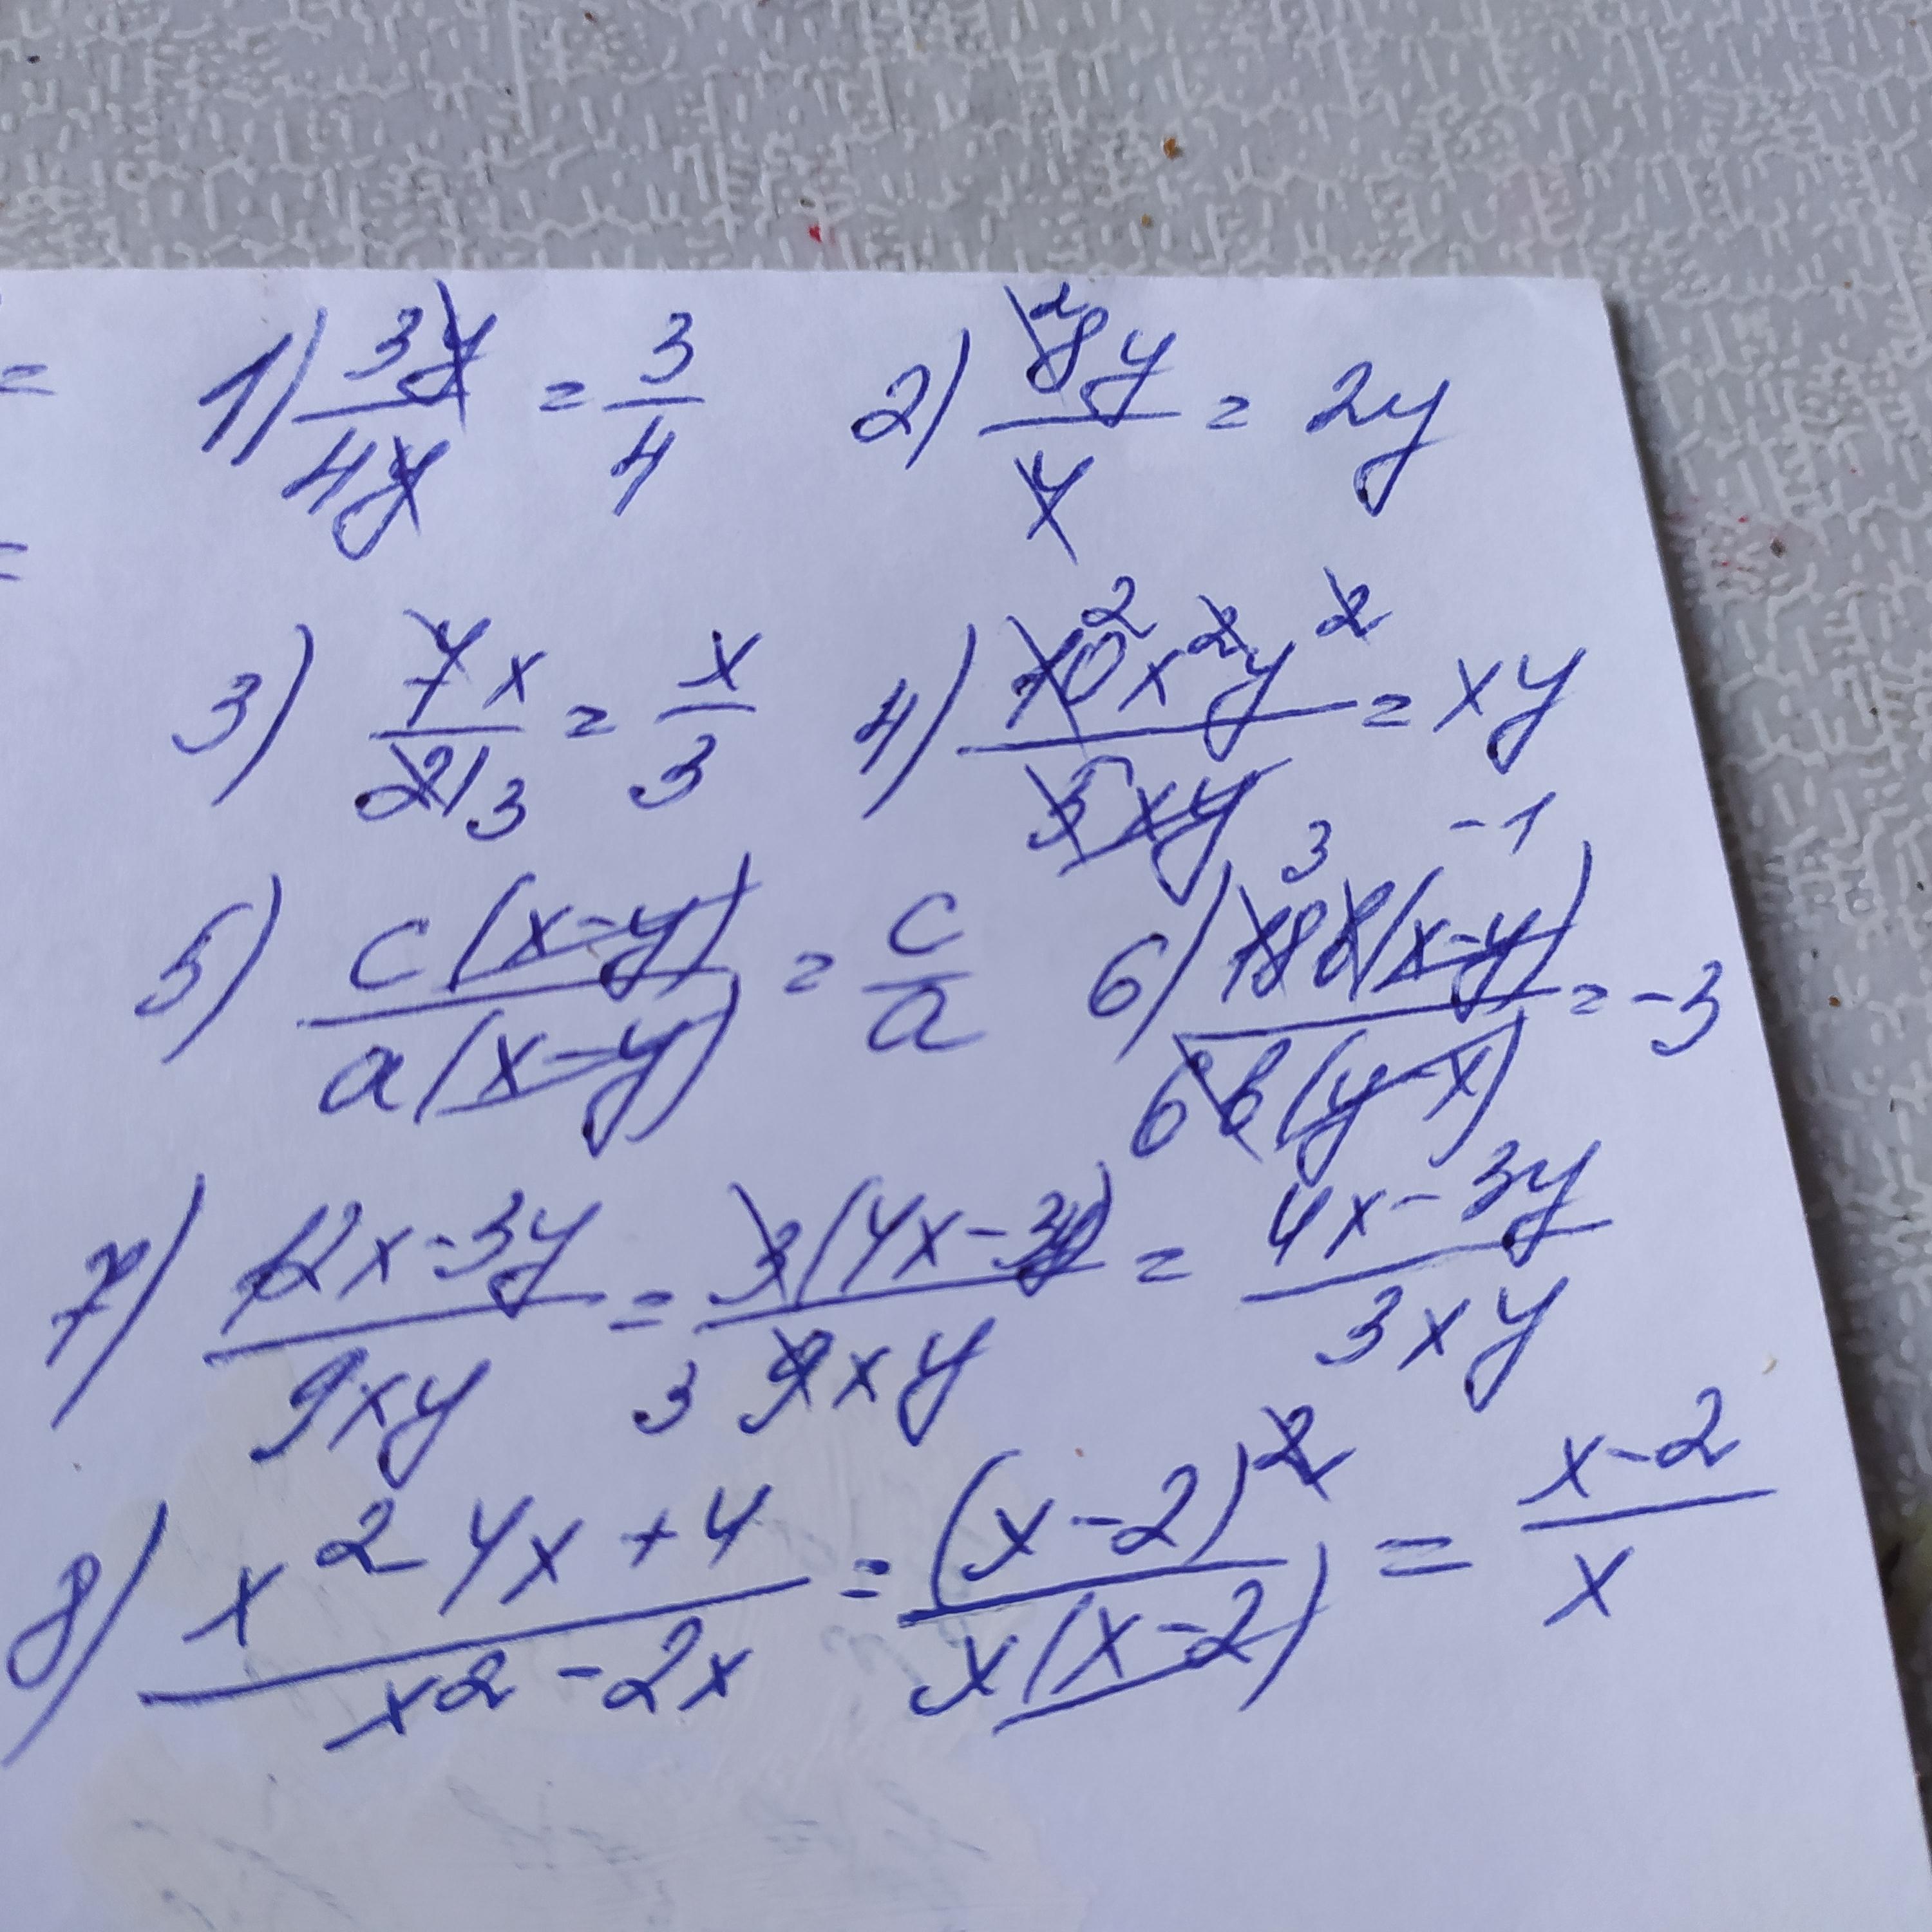 =
=
1) 3y/4y = 3/4 2) 8y/4 = 2y
3) 7x/21 3 = x/3 4) 10² x²y²/5xy = xy
5) c(x-y)/a(x-y) = c/a 6) 3 -1 18b(x-y)/6b(y-x) = -3
7) 12x-3y/9xy = 3(4x-3y)/3 9xy = 4x-3y/3xy
8) x²-4x+4/x²-2x = (x-2)²/x(x-2) = x-2/x